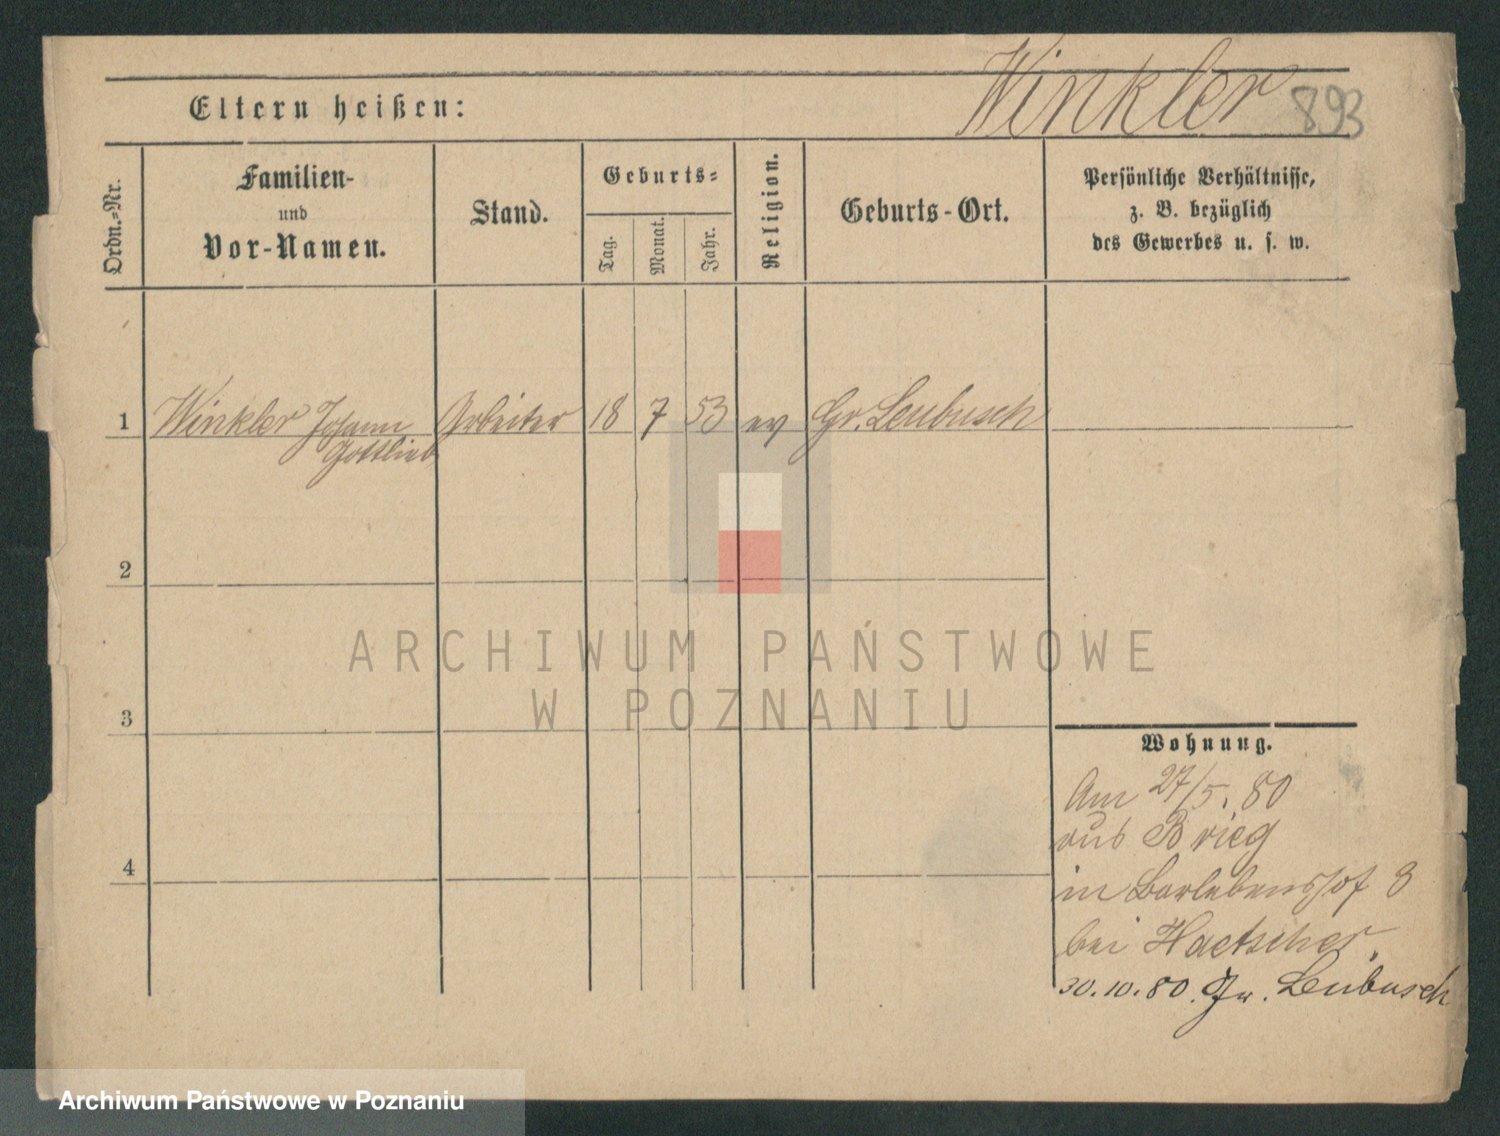 Winkler 893
Eltern heißen:
Ordn.-Nr.
Familien-
und
Vor-Namen.
Stand.
Geburts-
Tag.
Monat.
Jahr.
Religion.
Geburts-Ort.
Persönliche Verhältnisse,
z. B. bezüglich
des Gewerbes u. s. w.
1 Winkler Johann Arbeiter 18 7 53 ev Gr. Leubusch
Gottlieb
2
3
4
ARCHIWUM PAŃSTWOWE
W POZNANIU
Wohnung.
Am 27/5. 80
aus Brieg
in Barlebenshof 8
bei
30.10.80. Gr. Leubusch
Archiwum Państwowe w Poznaniu